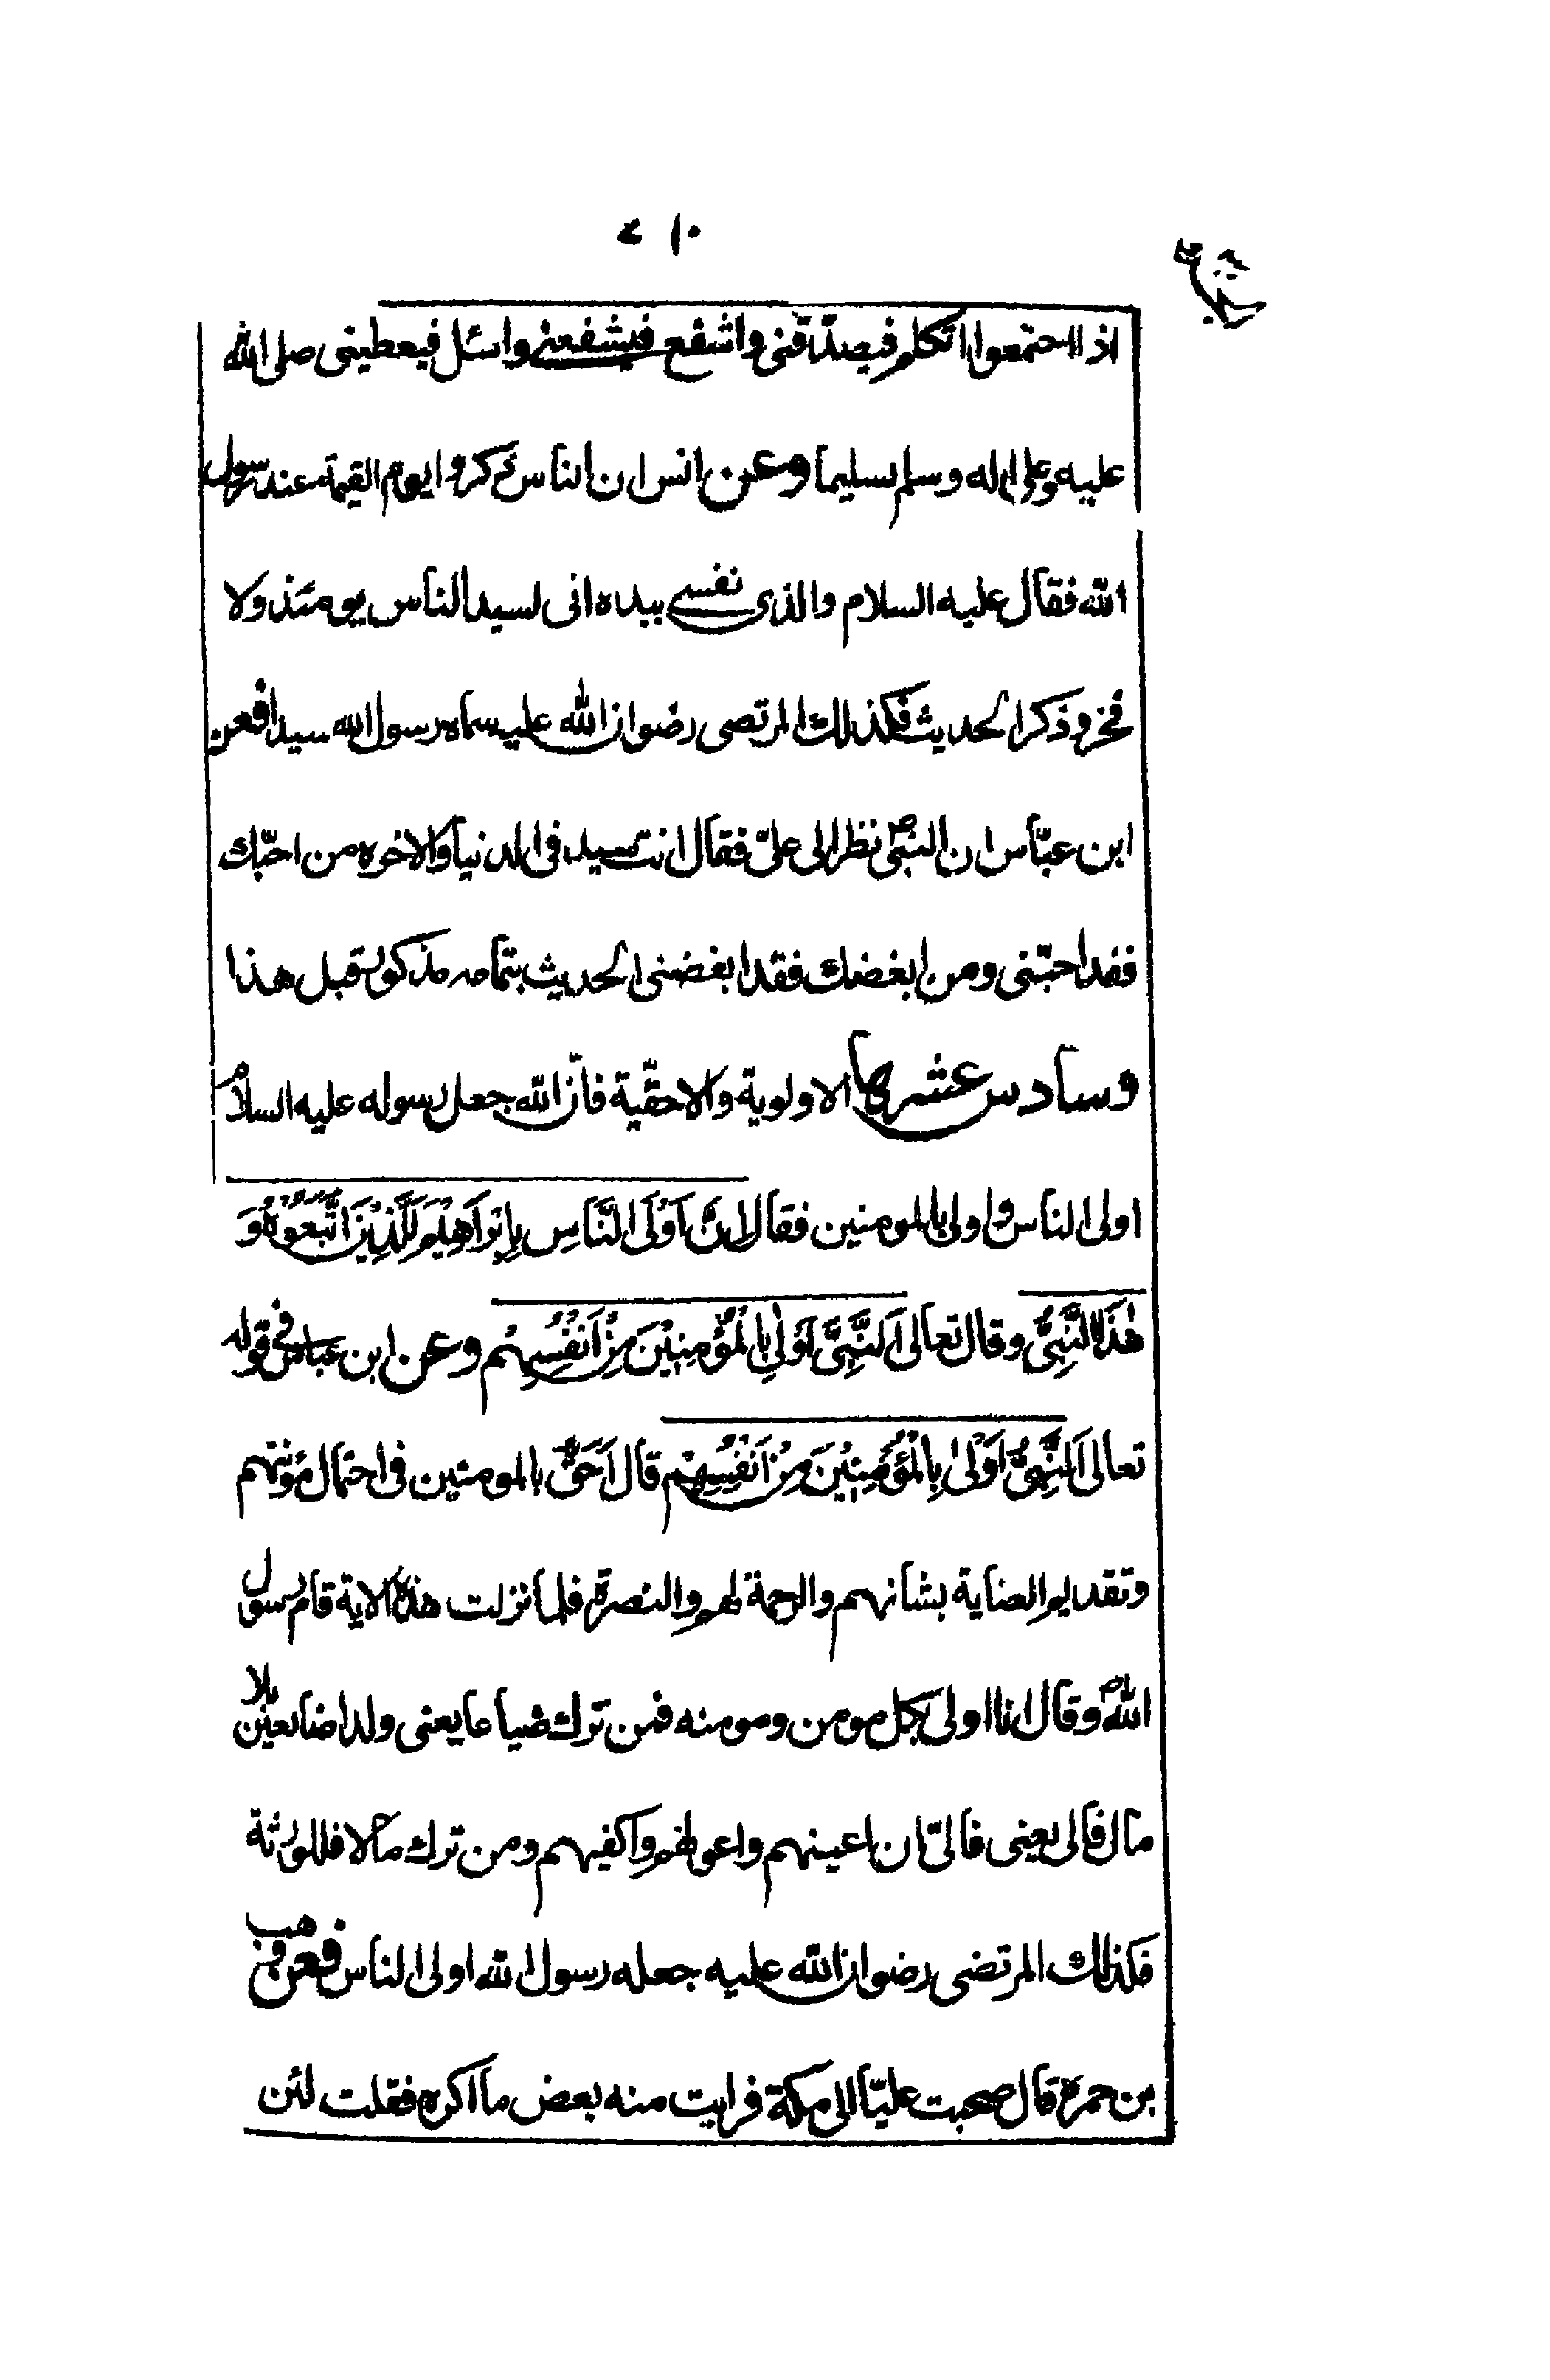 اذا اجتمعوا اتكلم فيصدّقنى واشفع فيشفعنى واسئل فيعطينى صلى الله
عليه وعلى اله وسلم تسليما وعن انس ان الناس ذكروا يوم القيمة عند رسول
الله فقال عليه السلام والذى نفسى بيده انى لسيد الناس يومئذ ولا
فخر وذكر الحديث فكذلك المرتضى رضوان الله عليه سماه رسول الله سيدا فعن
ابن عبّاس ان النبىّ نظر الى علىّ فقال انت سيد فى الدنيا والاخره من احبّك
فقد احبّنى ومن ابغضك فقد ابغضنى الحديث بتمامه مذكور قبل هذا
وسادس عشرها الاولوية والاحقّية فانّ الله جعل رسوله عليه السلام
اولى الناس واولى بالمومنين فقال اِنَّ اَوْلَى النَّاسِ بِاِبْرَاهِيْمَ لَلَّذِيْنَ اتَّبَعُوْهُ وَ
هٰذَا النَّبِىُّ وقال تعالى اَلنَّبِىُّ اَوْلٰى بِالْمُؤْمِنِيْنَ مِنْ اَنْفُسِهِمْ وعن ابن عباس فى قوله
تعالى اَلنَّبِىُّ اَوْلٰى بِالْمُؤْمِنِيْنَ مِنْ اَنْفُسِهِمْ قال اَحَقُّ بالمومنين فى احتمال مؤنتهم
وتقديم العناية بشانهم والرحمة لهم والنصرة فلما نزلت هذه الاية قام رسول
الله وقال انا اولى بكل مومن ومومنه فمن ترك ضياعا يعنى ولدا ضائعين بلا
مال فالى يعنى فالىّ ان اعينهم واعولهم واكفيهم ومن ترك مالا فللورثة
فكذلك المرتضى رضوان الله عليه جعله رسول الله اولى الناس فعن وهب
بن حمزة قال صحبت عليّا الى مكة فرايت منه بعض ما اكره فقلت لئن